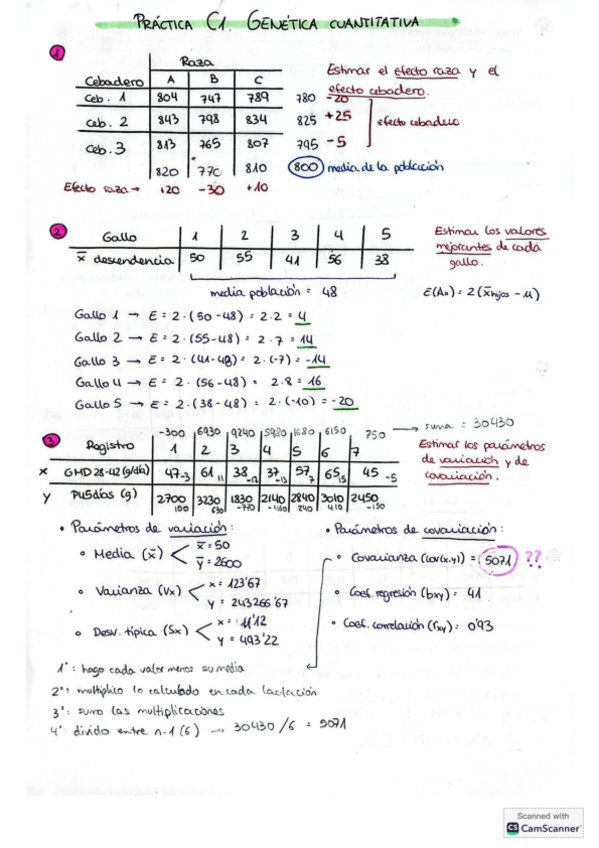 PRÁCTICA C1. GENÉTICA CUANTITATIVA
1
Raza
Cebadero A B C
Ceb. 1 804 747 789 780 -20
Ceb. 2 843 798 834 825 +25
Ceb. 3 813 765 807 795 -5
820 770 810 800 media de la población
Efecto raza → +20 -30 +10
Estimar el efecto raza y el
efecto cebadero.
efecto cebadero
2
Gallo 1 2 3 4 5
x̄ descendencia 50 55 41 56 38
Estimar los valores
mejorantes de cada
gallo.
media población = 48
E(Ax) = 2(x̄hijos - μ)
Gallo 1 → E = 2·(50-48) = 2·2 = 4
Gallo 2 → E = 2·(55-48) = 2·7 = 14
Gallo 3 → E = 2·(41-48) = 2·(-7) = -14
Gallo 4 → E = 2·(56-48) = 2·8 = 16
Gallo 5 → E = 2·(38-48) = 2·(-10) = -20
3
-300 6930 9240 5980 1680 6150 750 → suma = 30430
Registro 1 2 3 4 5 6 7
x GMD 28-42(g/día) 47 -3 61 11 38 -12 37 -13 57 7 65 15 45 -5
y PU5días (g) 2700 100 3230 630 1830 -770 2140 -460 2840 240 3010 410 2450 -150
Estimar los parámetros
de variación y de
covariación.
• Parámetros de variación:
• Media (x̄) x̄ = 50
ȳ = 2600
• Varianza (Vx) x = 123'67
y = 243266'67
• Desv. típica (Sx) x = 11'12
y = 493'22
• Parámetros de covariación:
• Covarianza (cov(x,y)) = 5071 ??
• Coef. regresión (bxy) = 41
• Coef. correlación (rxy) = 0'93
1º: hago cada valor menos su media
2º: multiplico lo calculado en cada lactación
3º: sumo las multiplicaciones
4º: divido entre n-1 (6) → 30430/6 = 5071
Scanned with
CS CamScanner